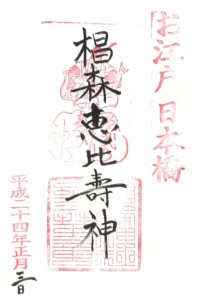 お江戸 日本橋
椙森恵比壽神
平成二十四年正月三日